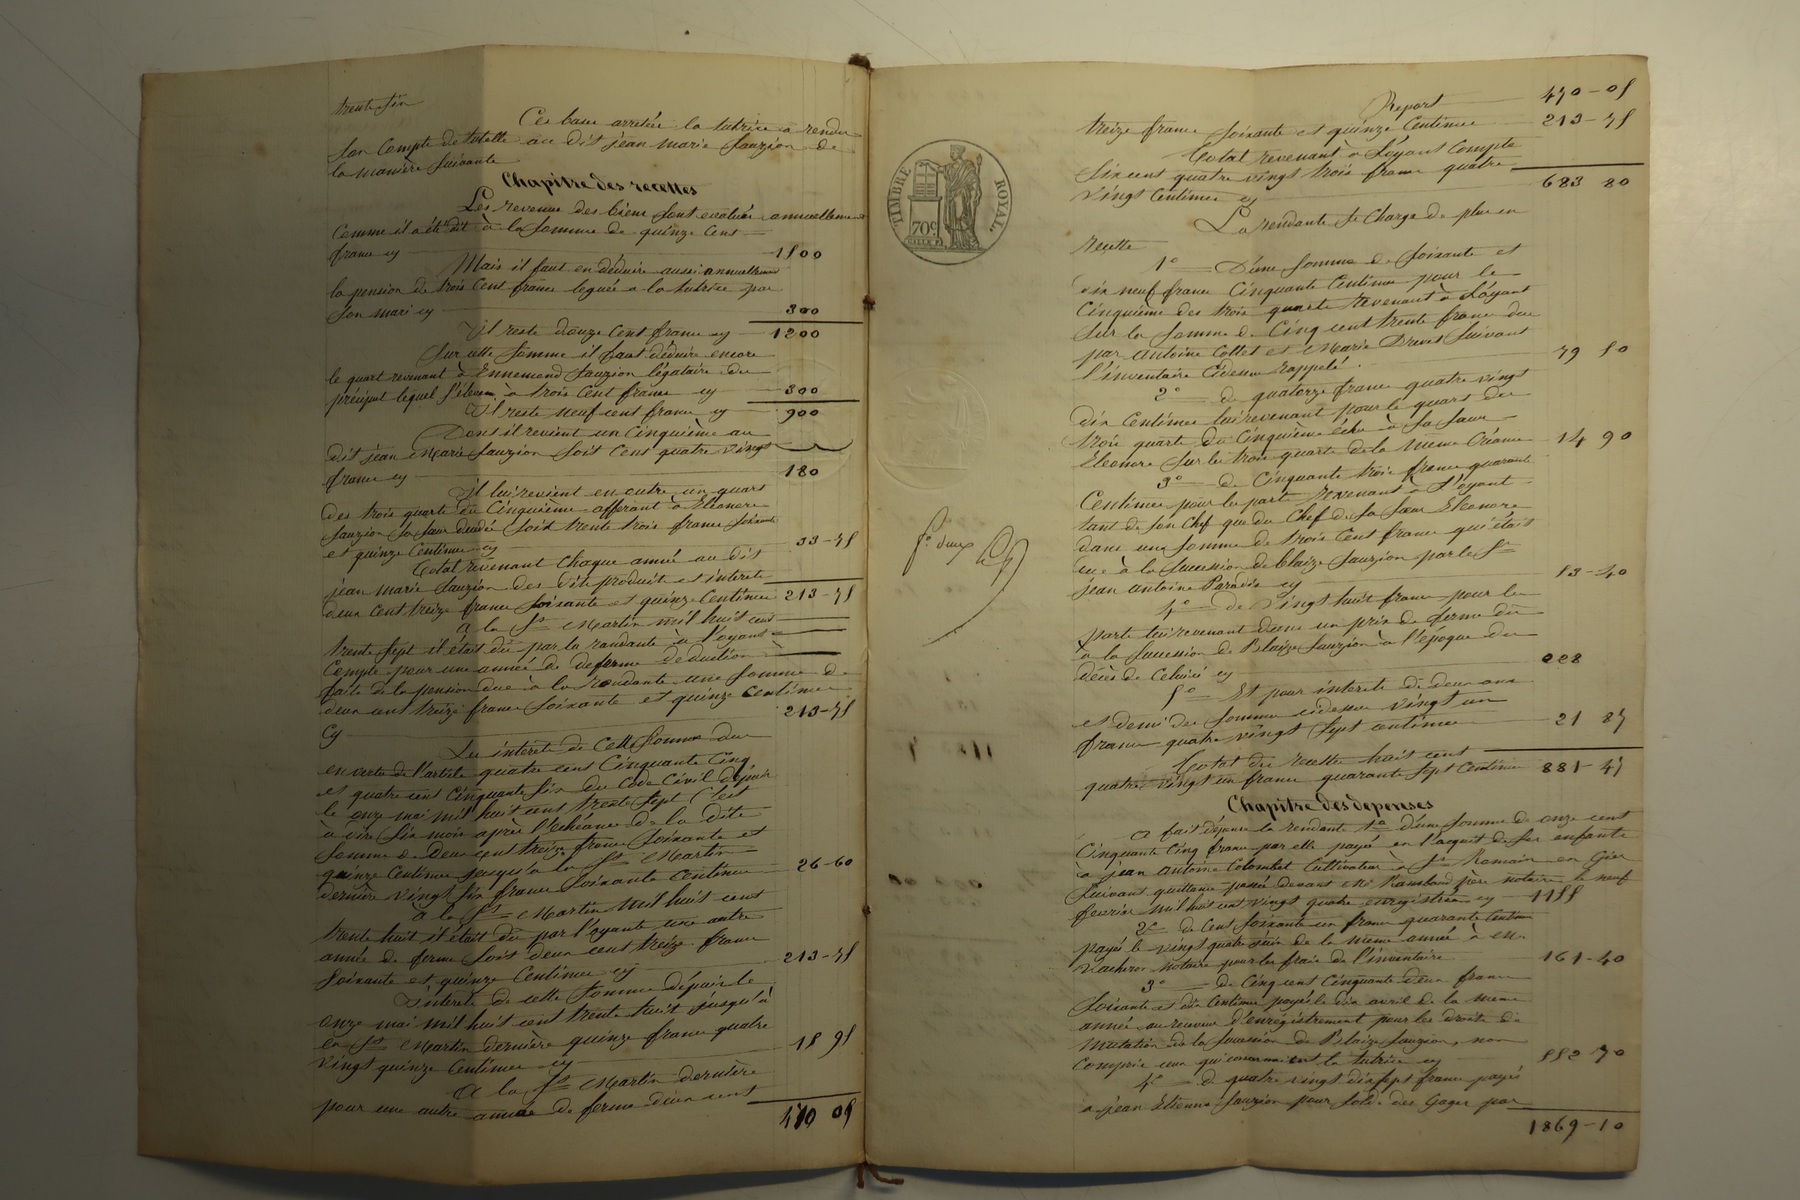 trente six
Ces bases arretées la tutrice a rendu
son Compte de tutelle au dit jean marie Sauzion de
la manière suivante
Chapitre des recettes
Les revenus des biens sont evalués annuellement
comme il a été dit à la somme de quinze cent
francs cy 1500
Mais il faut en déduire aussi annuellement
la pension de trois cent francs leguée a la tutrice par
son mari cy 300
Il reste douze cent francs cy 1200
Sur cette somme il faut déduire encore
le quart revenant à Ennemond Sauzion légataire du
préciput lequel s'élève à trois cent francs cy 300
Il reste neuf cent francs cy 900
Dont il revient un cinquième au
dit jean Marie Sauzion soit cent quatre vingt
francs cy 180
Il lui revient en outre un quart
des trois quarts du Cinquième afferant à Eléonore
Sauzion sa sœur decedée soit trente trois francs soixante
et quinze Centimes cy 33-75
Total revenant chaque année au dit
jean marie Sauzion des dits produits et interets
deux cent treize francs soixante et quinze Centimes 213-75
à la St Martin mil huit cent
trente sept il était dû par la rendante à l'oyant
Compte pour une année de ferme déduction
faite de la pension due à la rendante une somme de
deux cent treize francs soixante et quinze centimes
Cy 213-75
Les interets de cette somme dus
en vertu de l'article quatre cent Cinquante Cinq
et quatre cent cinquante six du Code Civil depuis
le onze mai mil huit cent trente sept c'est
à dire six mois après l'échéance de la dite
somme de deux cent treize francs soixante et
quinze centimes jusqu'à la St Martin
dernière vingt six francs soixante centimes 26-60
à la St Martin mil huit cent
trente huit il était dû par l'oyante une autre
année de ferme soit deux cent treize francs
soixante et quinze Centimes cy 213-75
Interets de cette somme depuis le
onze mai mil huit cent trente huit jusqu'à
la St Martin dernière quinze francs quatre
vingt quinze centimes cy 15 95
A la St Martin dernière
pour une autre année de ferme deux cent
470 05
TIMBRE ROYAL
70c
fo deux
Report 470-05
treize francs soixante et quinze Centimes 213-75
Total revenant à l'oyant Compte
six cent quatre vingt trois francs quatre
vingt Centimes cy 683 80
La rendante se Charge de plus en
recette
1o D'une somme de soixante et
dix neuf francs Cinquante Centimes pour le
Cinquième des trois quarts revenant à l'oyant
sur la somme de Cinq cent trente francs due
par antoine Collet et Marie Drevet suivant
l'inventaire cidessus rappelé. 79 50
2o de quatorze francs quatre vingt
dix Centimes lui revenant pour le quart des
trois quarts du cinquième échu à sa sœur
Eléonore sur les trois quarts de la meme Créance 14 90
3o de Cinquante trois francs quarante
Centimes pour la part revenant à l'oyant
tant de son Chef que du Chef de sa sœur Eléonore
dans une somme de trois Cent francs qui était
due à la succession de blaize Sauzion par le Sr
jean antoine Paradis cy 53-40
4o de vingt huit francs pour la
part lui revenant dans un prix de ferme dû
à la succession de Blaize Sauzion à l'époque du
décès de Celui ci cy 28
5o Et pour interets de deux ans
et demi des sommes cidessus vingt un
francs quatre vingt sept centimes 21 87
Total des recettes huit cent
quatre vingt un francs quarante sept Centimes 881-47
Chapitre des depenses
a fait dépense la rendante 1o d'une somme de onze cent
Cinquante Cinq francs par elle payé en l'acquit de ses enfants
à jean antoine Colombet Cultivateur à St Romain en Gier
suivant quittance passée devant Me Rambaud père notaire le neuf
fevrier mil huit cent vingt quatre enregistrée cy 1155
2o de cent soixante un francs quarante Centimes
payé le vingt quatre juin de la meme année à Me
Vacheron notaire pour les frais de l'inventaire 161-40
3o de Cinq cent Cinquante deux francs
soixante et dix Centimes payés le dix avril de la meme
année au receveur d'enregistrement pour les droits de
mutation de la succession de Blaize Sauzion, non
Compris ceux qui concernaient la tutrice cy 552-70
4o de quatre vingt dix sept francs payés
à jean Etienne Sauzion pour solde des Gages par
1869-10